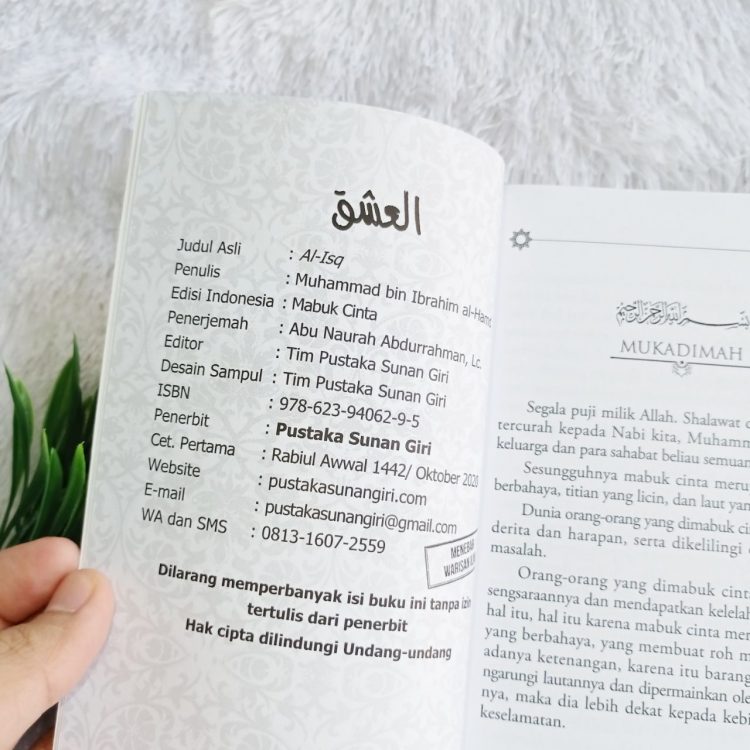 العشق
Judul Asli : Al-Isq
Penulis : Muhammad bin Ibrahim
Edisi Indonesia : Mabuk Cinta
Penerjemah : Abu Naurah Abdurrahman, Lc.
Editor : Tim Pustaka Sunan Giri
Desain Sampul : Tim Pustaka Sunan Giri
ISBN : 978-623-94062-9-5
Penerbit : Pustaka Sunan Giri
Cet. Pertama : Rabiul Awwal 1442/ Oktober 2020
Website : pustakasunangiri.com
E-mail : pustakasunangiri@gmail.com
WA dan SMS : 0813-1607-2559
MENEBAR
WARISAN
Dilarang memperbanyak isi buku ini tanpa izin
tertulis dari penerbit
Hak cipta dilindungi Undang-undang
بسم الله الرحمن الرحيم
MUKADIMAH
Segala puji milik Allah. Shalawat
tercurah kepada Nabi kita,
keluarga dan para sahabat beliau
Sesungguhnya mabuk cinta
berbahaya, titian yang licin, dan laut
Dunia orang-orang yang dimabuk
derita dan harapan, serta dikelilingi
masalah.
Orang-orang yang dimabuk
sengsaraannya dan mendapatkan
hal itu, hal itu karena mabuk cinta
yang berbahaya, yang membuat roh
adanya ketenangan, karena itu
ngarungi lautannya dan dipermainkan
nya, maka dia lebih dekat kepada
keselamatan.